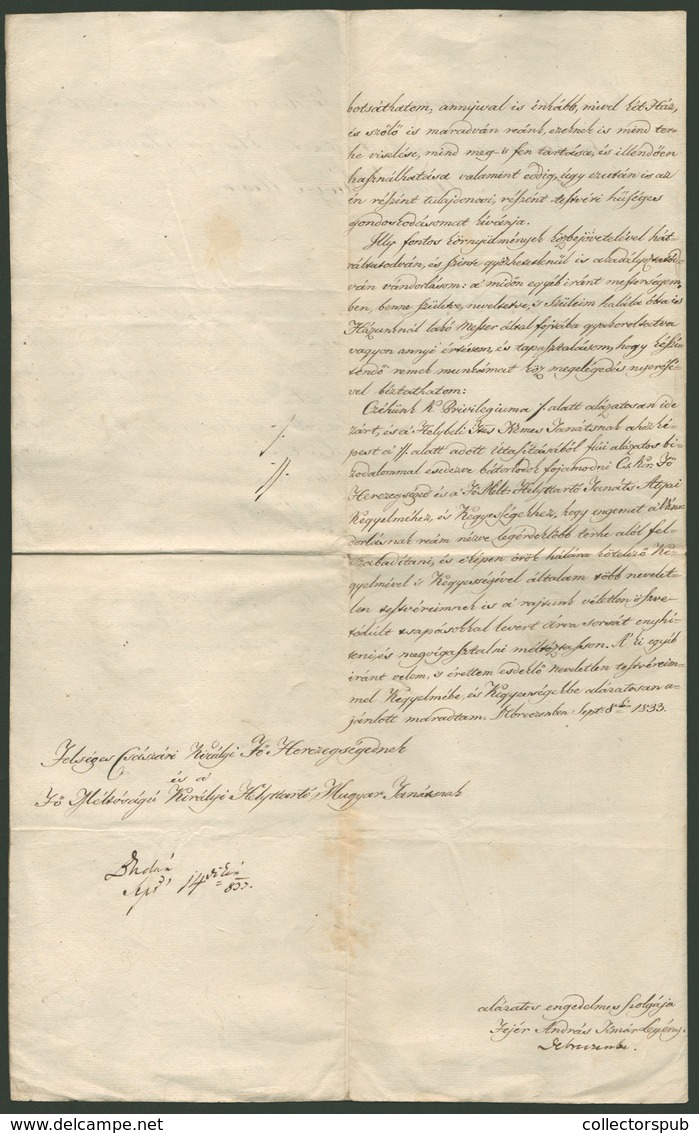 botsáthatom, annyival is inkább, mivel két Ház,
és szőlő is maradván reánk, ezeknek is mind ter-
he viselése, mind meg- 's fen tartása, és illendően
használhatása valamint eddig, úgy ezután is az
én részént tulajdonosi, részént testvéri hűséges
gondoskodásomat kivánja.
Illy fontos környűlmények közbejövetelével hát-
ráltatodván, és szinte győzhetetlenűl is akadályoztatód-
ván vándorlásom: a' midőn egyébiránt mesterségem-
ben, benne születve, neveltetve, 's Szüleim halála ólta is
Házunknál lakó Mester által fojtába gyakoroltatva
vagyon annyi értésem, és tapasztalásom, hogy készí-
tendő remek munkáimat köz megelégedés nyerésé-
vel biztathatom:
Czéhünk K. Privilegiuma /. alatt alázatosan ide
zárt, és a' Helybeli Ns Nemes Tanátsnak a'hoz ké-
pest a' //. alatt adott útasításából fiúi alázatos bi-
zodalommal esedezve bátorkodok fojamodni Cs. Kir. Fő
Herczegséged és a' Fő Mélt: Helyttartó Tanáts Atyai
Kegyelméhez, és Kegyességekhez, hogy engemet a' Ván-
dorlásnak reám nézve legérdeklőbb terhe alól fel-
szabadítani, és eképen örök hálára kötelező Ke-
gyelmével 's Kegyességével általam több nevelet-
len testvéreimnek is a' rajtunk véletlen öszve-
tódúlt tsapásokkal levert árva sorsát enyhí-
teni, és megvigasztalni méltóztasson. A' ki egyéb
iránt velem, 's érettem esdeklő neveletlen testvéreim-
mel Kegyelmébe, és Kegyességekbe alázatosan a-
jánlott maradtam. Debreczenben Sept: 8kán 1833.
/.
//.
Felséges Császári Királyi Fő Herczegségednek
és a'
Fő Méltóságú Királyi Helyttartó Magyar Tanátsnak
14dikén
833.
alázatos engedelmes szolgája
Fejér András Timár legény.
Debreczenbe.
collectorspub